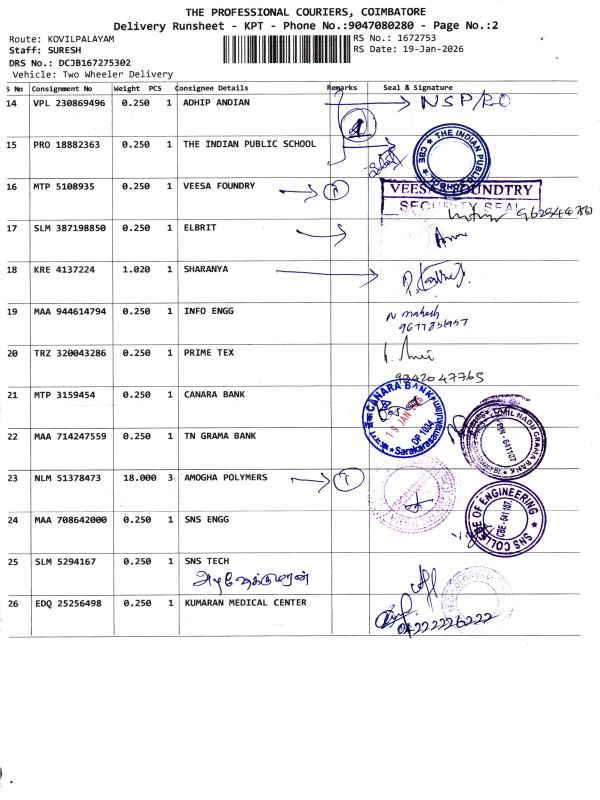 THE PROFESSIONAL COURIERS, COIMBATORE
Delivery Runsheet - KPT - Phone No.:9047080280 - Page No.:2
Route: KOVILPALAYAM
RS No.: 1672753
Staff: SURESH
RS Date: 19-Jan-2026
DRS No.: DCJB167275302
Vehicle: Two Wheeler Delivery
S No Consignment No Weight PCS Consignee Details Remarks Seal & Signature
14 VPL 230869496 0.250 1 ADHIP ANDIAN NSP/RO
15 PRO 18882363 0.250 1 THE INDIAN PUBLIC SCHOOL
THE INDIAN PUBLIC SCHOOL CBE
16 MTP 5108935 0.250 1 VEESA FOUNDRY
VEESA FOUNDTRY
SECURITY SEAL
17 SLM 387198850 0.250 1 ELBRIT
18 KRE 4137224 1.020 1 SHARANYA
19 MAA 944614794 0.250 1 INFO ENGG
N Mahesh
20 TRZ 320043286 0.250 1 PRIME TEX
9342047763
21 MTP 3159454 0.250 1 CANARA BANK
CANARA BANK
19 JAN
DP 1034
22 MAA 714247559 0.250 1 TN GRAMA BANK
TAMIL NADU GRAMA BANK
PIN - 641107
23 NLM 51378473 18.000 3 AMOGHA POLYMERS
24 MAA 708642000 0.250 1 SNS ENGG
SNS COLLEGE OF ENGINEERING
CBE-641107
25 SLM 5294167 0.250 1 SNS TECH
26 EDQ 25256498 0.250 1 KUMARAN MEDICAL CENTER
04222226222